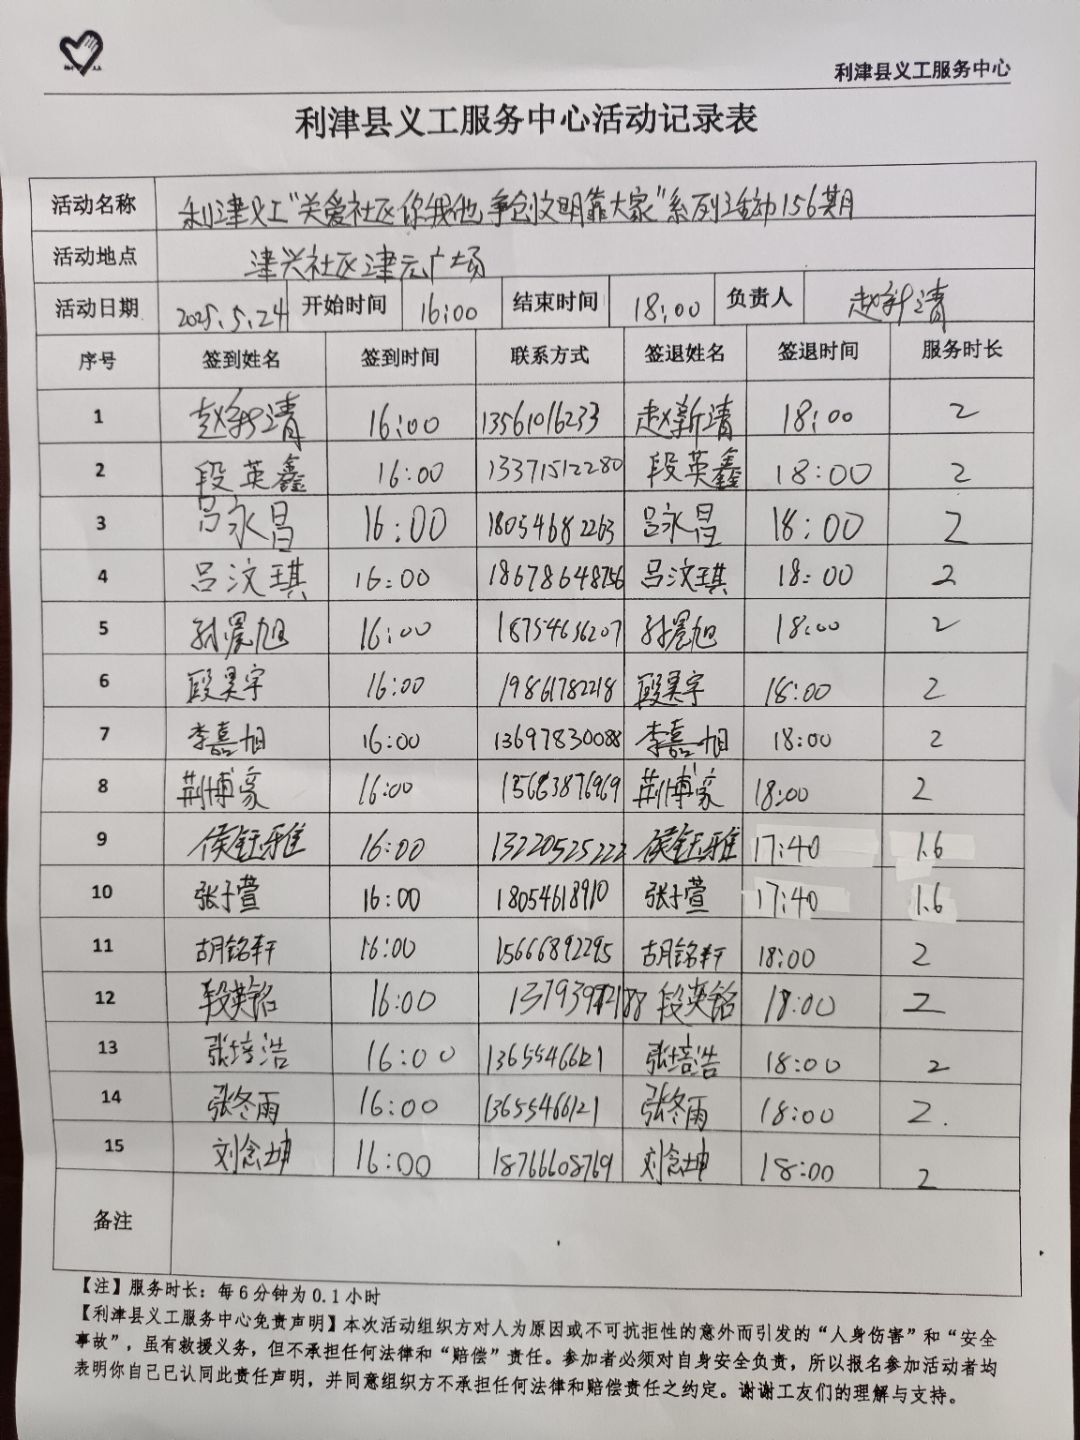 利津县义工服务中心
利津县义工服务中心活动记录表
活动名称 利津义工"关爱社区你我他,争创文明靠大家"系列活动156期
活动地点 津兴社区津元广场
活动日期 2025.5.24 开始时间 16:00 结束时间 18:00 负责人 赵新清
序号 签到姓名 签到时间 联系方式 签退姓名 签退时间 服务时长
1 赵新清 16:00 13561016233 赵新清 18:00 2
2 段英鑫 16:00 13371512280 段英鑫 18:00 2
3 吕永昌 16:00 18054682263 吕永昌 18:00 2
4 吕汶琪 16:00 18678648756 吕汶琪 18:00 2
5 孙晨旭 16:00 18754656207 孙晨旭 18:00 2
6 段昊宇 16:00 19861782218 段昊宇 18:00 2
7 李嘉旭 16:00 13697830088 李嘉旭 18:00 2
8 荆博豪 16:00 荆博豪 18:00 2
9 侯钰雅 16:00 13220525222 侯钰雅 17:40 1.6
10 张子萱 16:00 18054618910 张子萱 17:40 1.6
11 胡铭轩 16:00 15666892295 胡铭轩 18:00 2
12 段英铭 16:00 段英铭 18:00 2
13 张培浩 16:00 张培浩 18:00 2
14 张冬雨 16:00 张冬雨 18:00 2.
15 刘念坤 16:00 18766608769 刘念坤 18:00 2
备注
【注】服务时长：每6分钟为0.1小时
【利津县义工服务中心免责声明】本次活动组织方对人为原因或不可抗拒性的意外而引发的“人身伤害”和“安全
事故”，虽有救援义务，但不承担任何法律和“赔偿”责任。参加者必须对自身安全负责，所以报名参加活动者均
表明你自己已认同此责任声明，并同意组织方不承担任何法律和赔偿责任之约定。谢谢工友们的理解与支持。